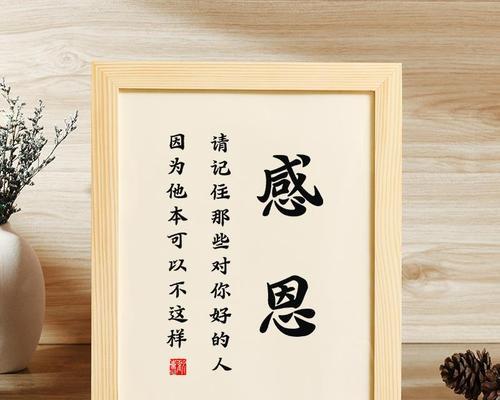 感恩
请记住那些对你好的人
因为他本可以不这样